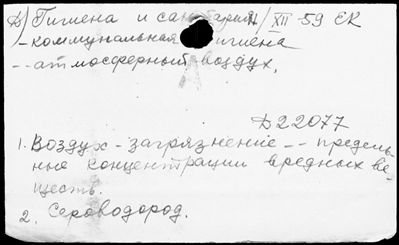 Д) Гигиена и санитария 21/XII-59 ЕК
- коммунальная гигиена
-- атмосферный воздух.
Д22077
1. Воздух - загрязнение -- предель-
ные концентрации вредных ве-
ществ.
2. Сероводород.